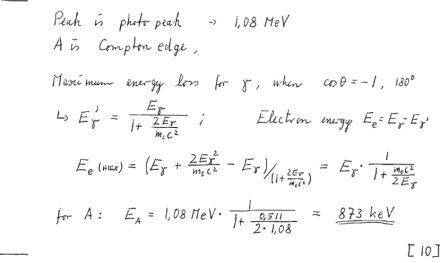 Peak is photo peak → 1,08 MeV
A is Compton edge,
Maximum energy loss for γ, when cosθ = -1, 180°
↳ Eγ' = Eγ / (1 + 2Eγ / m₀c²) ; Electron energy Ee = Eγ - Eγ'
Ee (max) = (Eγ + 2Eγ² / m₀c² - Eγ) / (1 + 2Eγ / m₀c²) = Eγ · 1 / (1 + m₀c² / 2Eγ)
for A: EA = 1,08 MeV · 1 / (1 + 0,511 / 2·1,08) = 873 keV
[10]